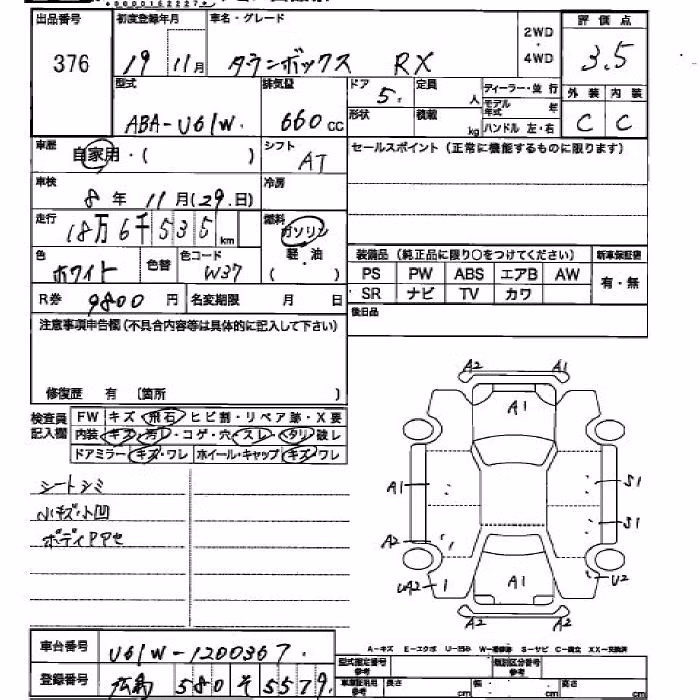 出品番号 初度登録年月 車名・グレード 2WD 評価点
376 19 11月 タウンボックス RX ・ 3.5
4WD
型式 排気量 ドア 定員 ディーラー・並行 外装 内装
5. 人 モデル年式
ABA-U61W. 660cc 形状 積載 kg ハンドル 左・右 C C
車歴 自家用・( ) シフト AT セールスポイント (正常に機能するものに限ります)
車検 8年 11月(29日) 冷房
走行 18万6千535km 燃料 ガソリン
軽・油
( )
色 ホワイト 色替 色コード W37 装備品 (純正品に限り○をつけてください) 新車保証書
PS PW ABS エアB AW 有・無
R券 9800円 名変期限 月 日 SR ナビ TV カワ
注意事項申告欄(不具合内容等は具体的に記入して下さい) 後日品
修復歴 有 〔箇所 )
検査員記入欄 FW キズ・飛石・ヒビ割・リペア跡・X要
内装 キズ・汚レ・コゲ・穴・スレ・タリ・破レ
ドアミラー キズ・ワレ ホイール・キャップ キズ・ワレ
シートシミ
小キズ小凹
ボディPPセ
A2 A1
A1
A1 S1
S1
A2
UA2 A1 U2
A2 A2
車台番号 U61W-1200367.
A-キズ E-エクボ U-凹み W-補修跡 S-サビ C-腐食 XX-交換済
登録番号 広島 580 そ 5579. 型式指定番号 参考 類別区分番号 参考
車庫証明用 参考 長さ cm 幅 cm 高さ cm